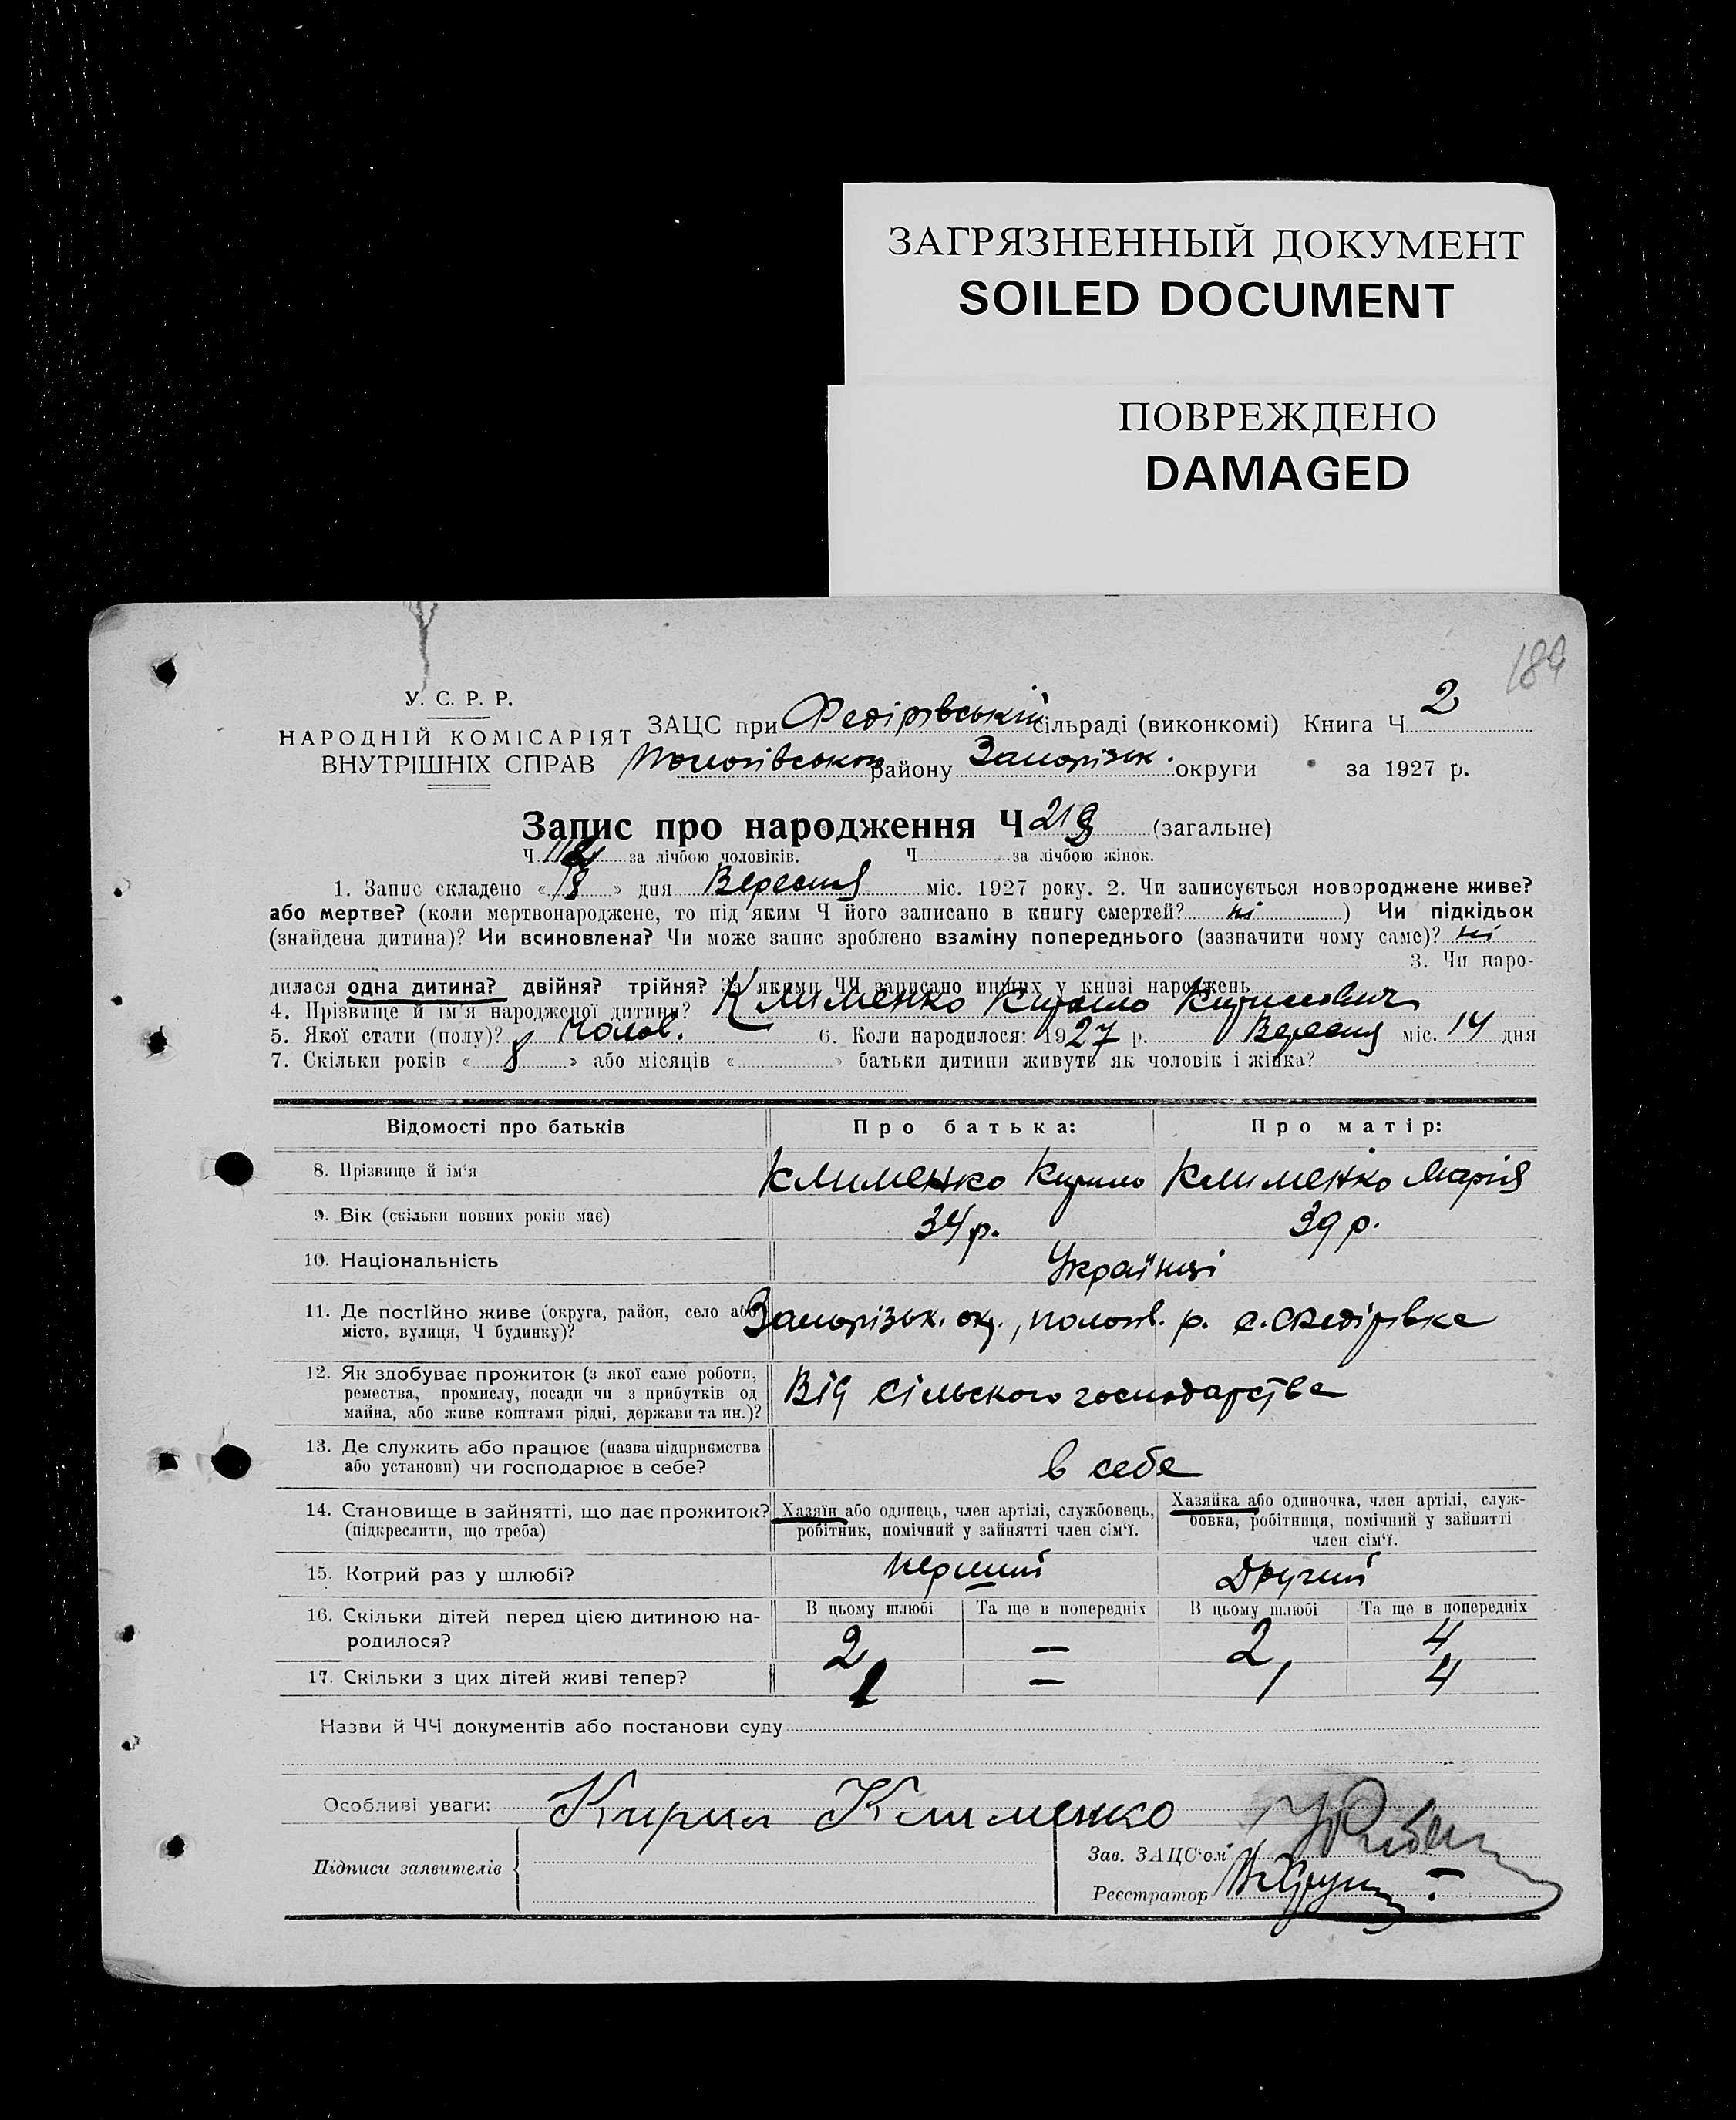 ЗАГРЯЗНЕННЫЙ ДОКУМЕНТ
SOILED DOCUMENT
ПОВРЕЖДЕНО
DAMAGED
189
У. С. Р. Р.
НАРОДНІЙ КОМІСАРІЯТ
ВНУТРІШНІХ СПРАВ
ЗАЦС при Федірівській сільраді (виконкомі) Книга Ч 2
Пологівського району Запорізьк. округи за 1927 р.
Запис про народження Ч 219 (загальне)
Ч. 112 за лічбою чоловіків. Ч. за лічбою жінок.
1. Запис складено « 18 » дня Вересня міс. 1927 року. 2. Чи записується новороджене живе?
або мертве? (коли мертвонароджене, то під яким Ч його записано в книгу смертей? ні ) Чи підкідьок
(знайдена дитина)? Чи всиновлена? Чи може запис зроблено взаміну попереднього (зазначити чому саме)? ні
3. Чи наро-
дилася одна дитина? двійня? трійня? За якими ЧЧ записано инших у книзі народжень
4. Прізвище й ім'я народженої дитини? Клименко Кирило Кирилович
5. Якої стати (полу)? Чолов. 6. Коли народилося: 1927 р. Вересня міс. 14 дня
7. Скільки років « 8 » або місяців « » батьки дитини живуть як чоловік і жінка?
Відомості про батьків Про батька: Про матір:
8. Прізвище й ім'я Клименко Кирило Клименко Марія
9. Вік (скільки повних років має) 34 р. 39 р.
10. Національність Українці
11. Де постійно живе (округа, район, село або Запорізьк. окр., полог. р. с. Федірівка
місто, вулиця, Ч будинку)?
12. Як здобуває прожиток (з якої саме роботи,
ремества, промислу, посади чи з прибутків од Від сільского господарства
майна, або живе коштами рідні, держави та ин.)?
13. Де служить або працює (назва підприємства
або установи) чи господарює в себе? в себе
14. Становище в зайнятті, що дає прожиток? Хазяїн або одинець, член артілі, службовець, Хазяйка або одиночка, член артілі, служ-
(підкреслити, що треба) робітник, помічний у зайнятті член сім'ї. бовка, робітниця, помічний у зайнятті
член сім'ї.
15. Котрий раз у шлюбі? перший Другий
16. Скільки дітей перед цією дитиною на- В цьому шлюбі Та ще в попередніх В цьому шлюбі Та ще в попередніх
родилося? 2 — 2 4
17. Скільки з цих дітей живі тепер? 1 — 1 4
Назви й ЧЧ документів або постанови суду
Особливі уваги: Кирил Клименко
Підписи заявителів
Зав. ЗАЦС'ом
Реєстратор